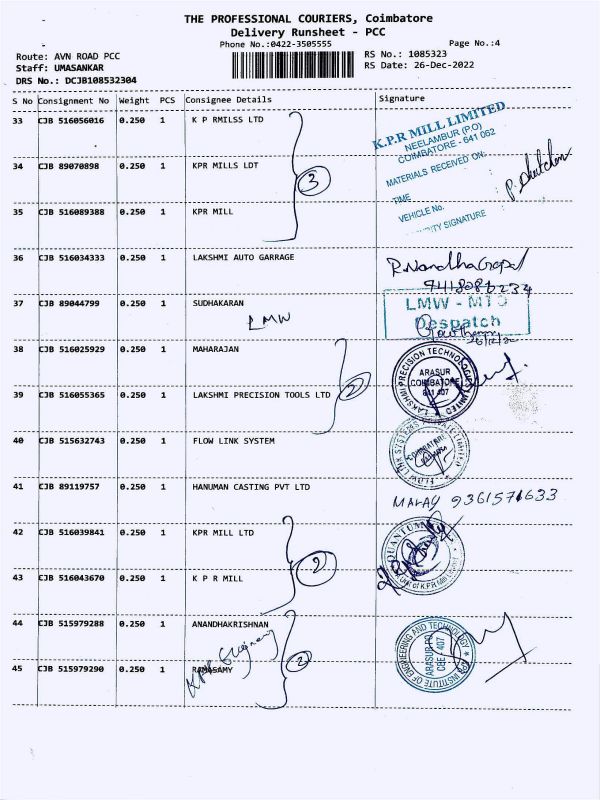 THE PROFESSIONAL COURIERS, Coimbatore
Delivery Runsheet - PCC
Phone No.:0422-3505555
Page No.:4
Route: AVN ROAD PCC
RS No.: 1085323
Staff: UMASANKAR
RS Date: 26-Dec-2022
DRS No.: DCJB108532304
S No Consignment No Weight PCS Consignee Details Signature
33 CJB 516056016 0.250 1 K P RMILSS LTD
K.P.R MILL LIMITED
NEELAMBUR (P.O)
COIMBATORE - 641 062
MATERIALS RECEIVED ON:
TIME :
VEHICLE No. :
SIGNATURE :
34 CJB 89070898 0.250 1 KPR MILLS LDT
3
35 CJB 516089388 0.250 1 KPR MILL
36 CJB 516034333 0.250 1 LAKSHMI AUTO GARRAGE
R.NandhaGopal
37 CJB 89044799 0.250 1 SUDHAKARAN
LMW
LMW - MTD
Despatch
38 CJB 516025929 0.250 1 MAHARAJAN
2
LAKSHMI PRECISION TECHNOLOGIES LIMITED
ARASUR
COIMBATORE
641 407
39 CJB 516055365 0.250 1 LAKSHMI PRECISION TOOLS LTD
40 CJB 515632743 0.250 1 FLOW LINK SYSTEM
FLOW LINK SYSTEMS PRIVATE LIMITED
COIMBATORE
41 CJB 89119757 0.250 1 HANUMAN CASTING PVT LTD
MALAY 9361571633
42 CJB 516039841 0.250 1 KPR MILL LTD
2
QUANTUM
Unit of K.P.R Mill Limited
43 CJB 516043670 0.250 1 K P R MILL
44 CJB 515979288 0.250 1 ANANDHAKRISHNAN
KPR Engineering
2
KPR INSTITUTE OF ENGINEERING AND TECHNOLOGY
ARASUR PO
CBE - 407
45 CJB 515979290 0.250 1 RAMASAMY